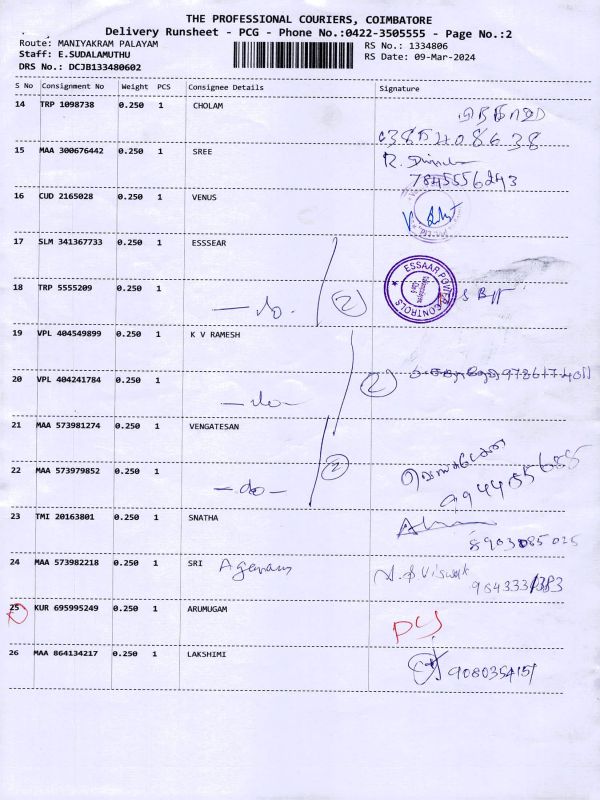 THE PROFESSIONAL COURIERS, COIMBATORE
Delivery Runsheet - PCG - Phone No.:0422-3505555 - Page No.:2
Route: MANIYAKRAM PALAYAM
RS No.: 1334806
Staff: E.SUDALAMUTHU
RS Date: 09-Mar-2024
DRS No.: DCJB133480602
S No Consignment No Weight PCS Consignee Details Signature
14 TRP 1098738 0.250 1 CHOLAM
15 MAA 300676442 0.250 1 SREE
7845556243
16 CUD 2165028 0.250 1 VENUS
17 SLM 341367733 0.250 1 ESSSEAR
ESSAAR POWER CONTROLS
18 TRP 5555209 0.250 1
-do- 2
19 VPL 404549899 0.250 1 K V RAMESH
20 VPL 404241784 0.250 1
-do- 2
21 MAA 573981274 0.250 1 VENGATESAN
22 MAA 573979852 0.250 1
-do- 2
23 TMI 20163801 0.250 1 SNATHA
24 MAA 573982218 0.250 1 SRI
25 KUR 695995249 0.250 1 ARUMUGAM
26 MAA 864134217 0.250 1 LAKSHIMI